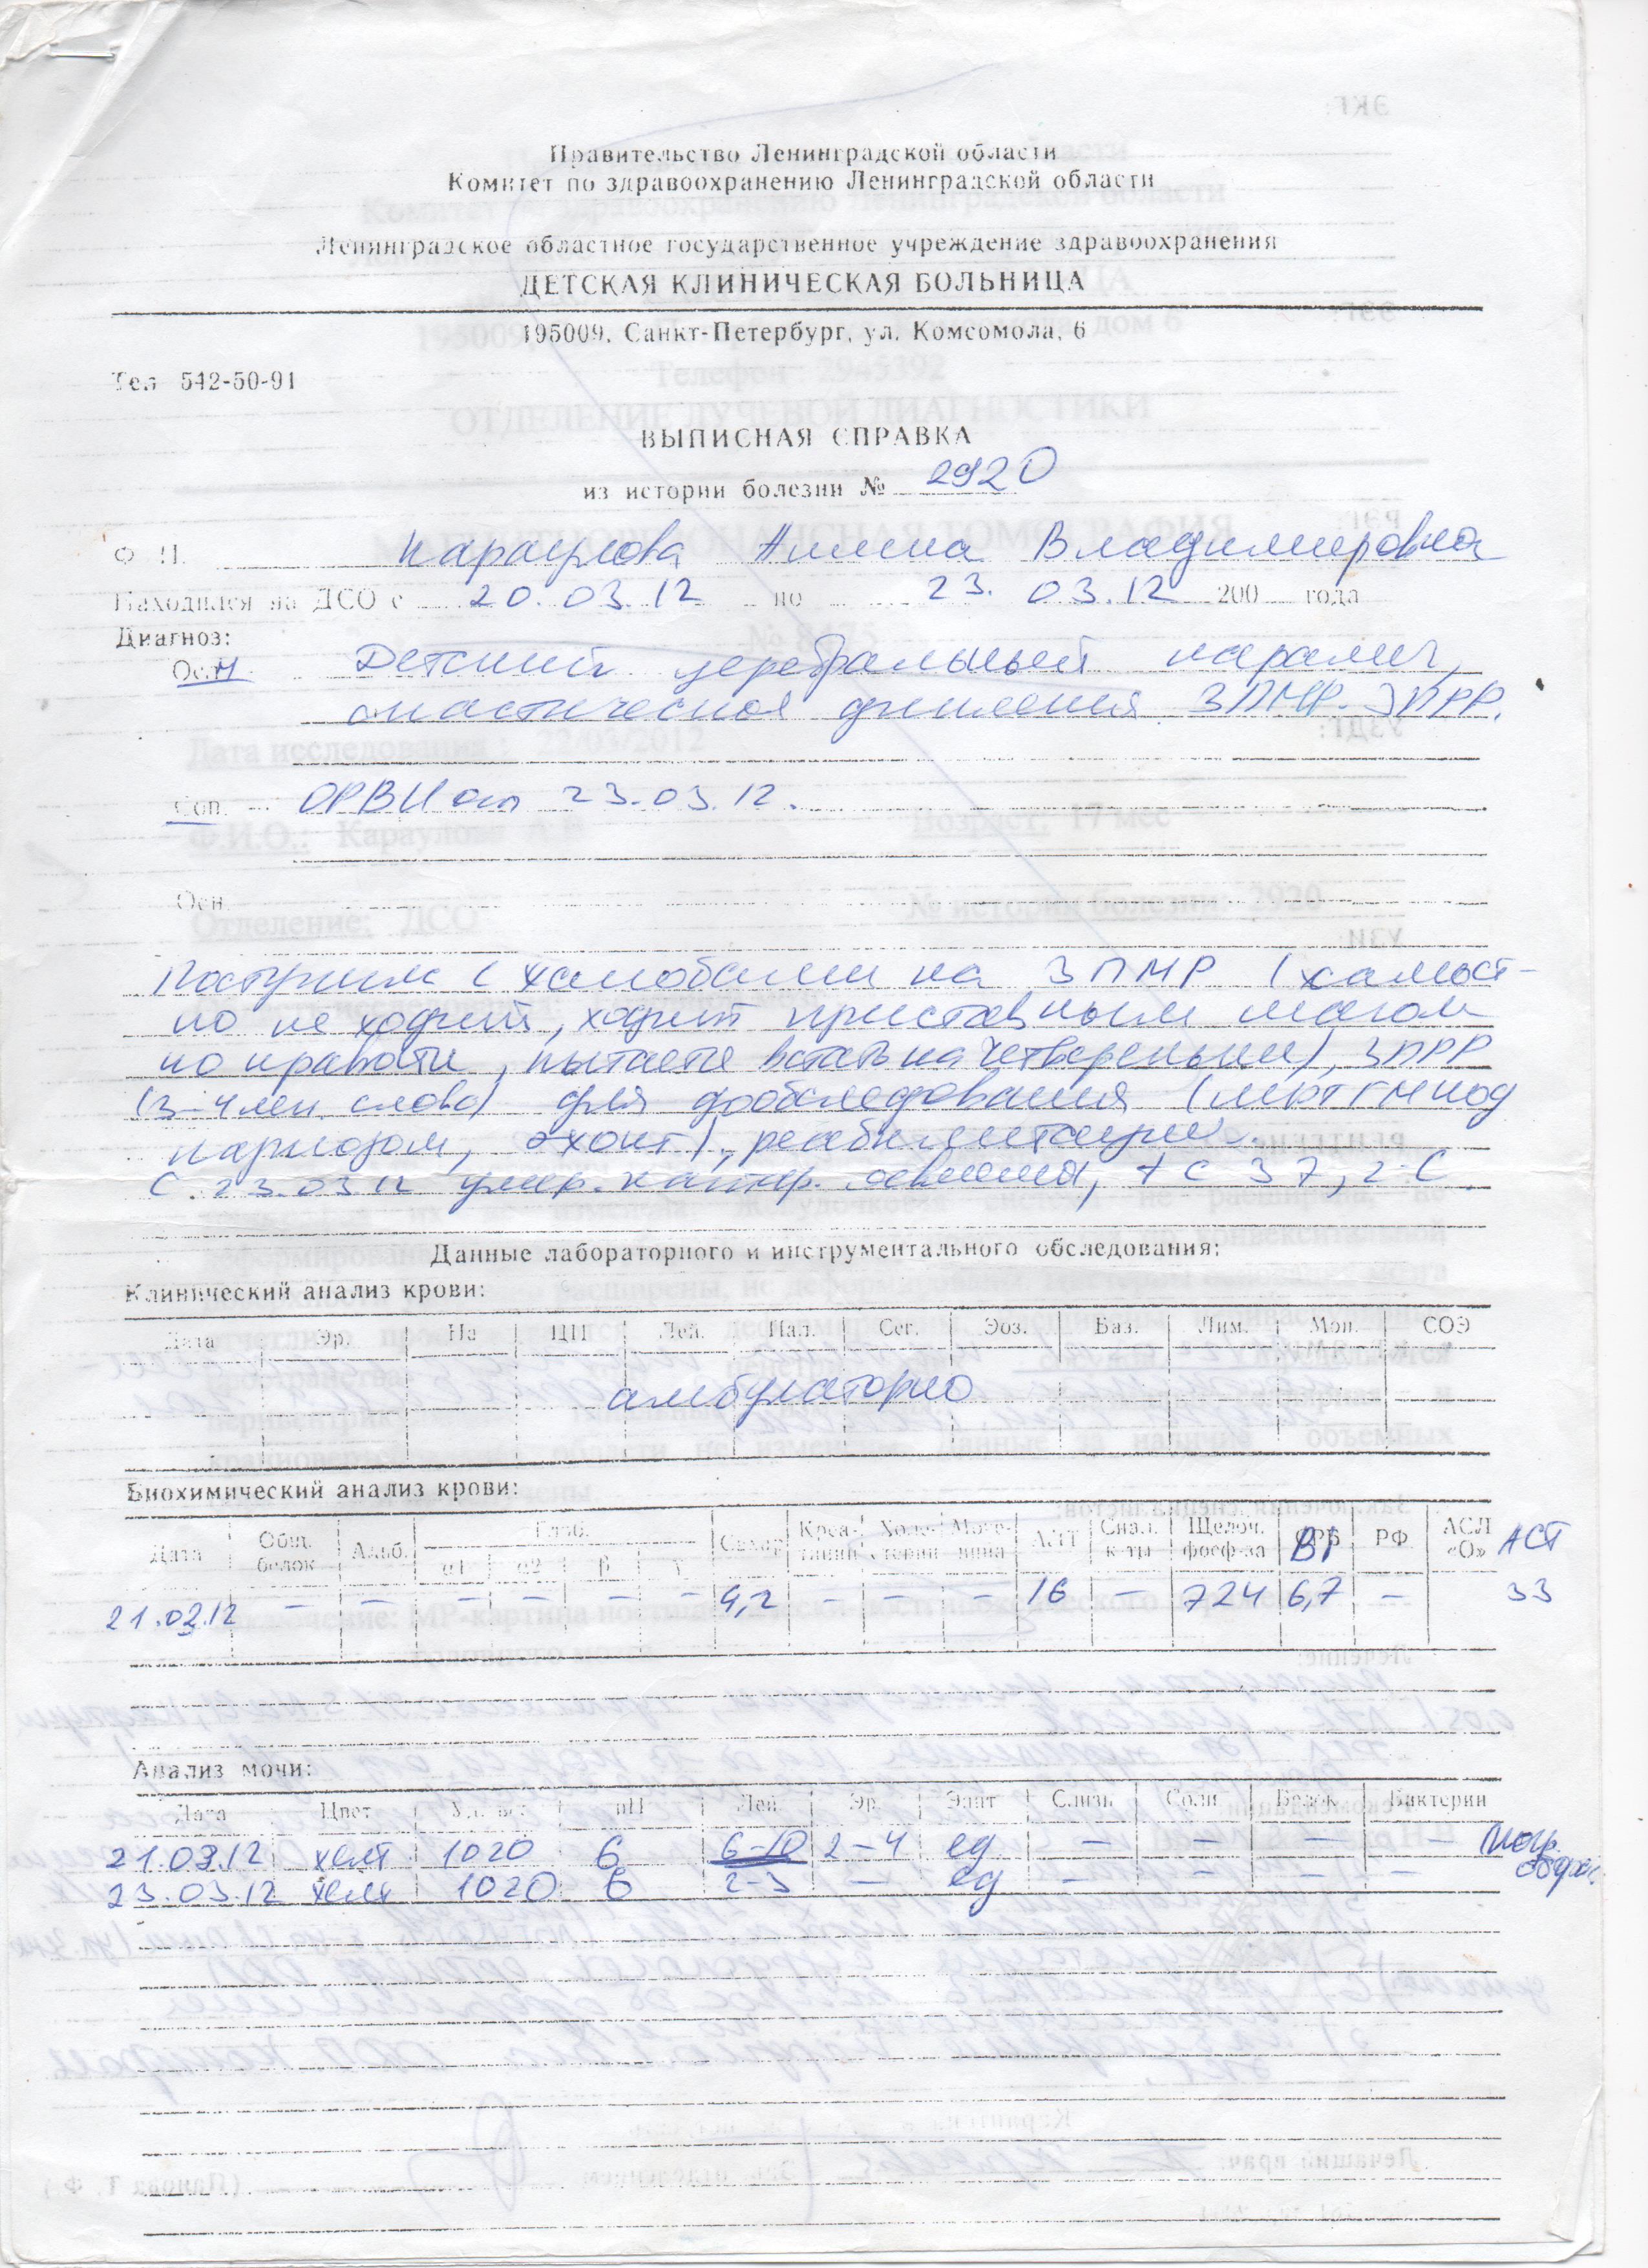 Правительство Ленинградской области
Комитет по здравоохранению Ленинградской области
Ленинградское областное государственное учреждение здравоохранения
ДЕТСКАЯ КЛИНИЧЕСКАЯ БОЛЬНИЦА
195009, Санкт-Петербург, ул. Комсомола, 6
Тел 542-50-91
ВЫПИСНАЯ СПРАВКА
из истории болезни № 2920
Ф. И. Караулова Алина Владимировна
Находился на ДСО с 20.03.12 по 23.03.12 200 года
Диагноз:
Осн. Детский церебральный паралич,
спастическая диплегия. ЗПМР. ЗПРР.
Соп. ОРВИ от 23.03.12.
Осн.
Поступила с жалобами на ЗПМР (самост-
но не ходит, ходит приставным шагом
по кровати, пытается встать на четвереньки), ЗПРР
(3-4 леп. слова) для дообследования (МРТ ГМ под
наркозом, ), реабилитации.
С 23.03.12 умер. катар. явления, t С 37,2 С.
Данные лабораторного и инструментального обследования:
Клинический анализ крови:
Дата Эр. Hb ЦП Лей. Пал. Сег. Эоз. Баз. Лим. Мон. СОЭ
амбулаторно
Биохимический анализ крови:
Дата Общ. белок Альб. Глоб. α1 α2 β γ Сахар Креа-тинин Холе-стерин Моче-вина АЛТ Сиал. к-ты Щелоч. фосф-за СРБ Bi РФ АСЛ «О» АСТ
21.03.12 – – – – – – 4,2 – – – 16 – 724 6,7 – 33
Анализ мочи:
Дата Цвет Уд. вес pH Лей. Эр. Эпит Слизь Соли Белок Бактерии
21.03.12 желт 1020 6 6-10 2-4 ед – – – –
23.03.12 желт 1020 6 2-3 – ед – – – –